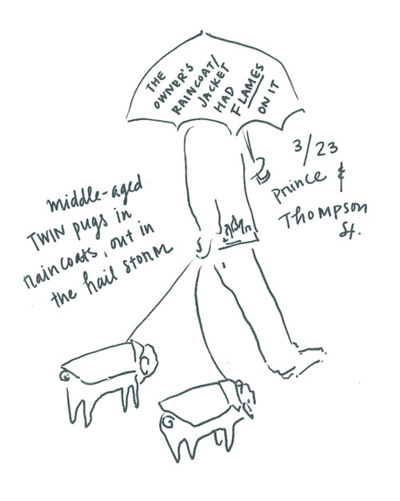 THE
OWNER'S
RAINCOAT/
JACKET
HAD
FLAMES
ON IT
3/23
Prince &
Thompson
St.
middle-aged
TWIN pugs in
raincoats, out in
the hail storm